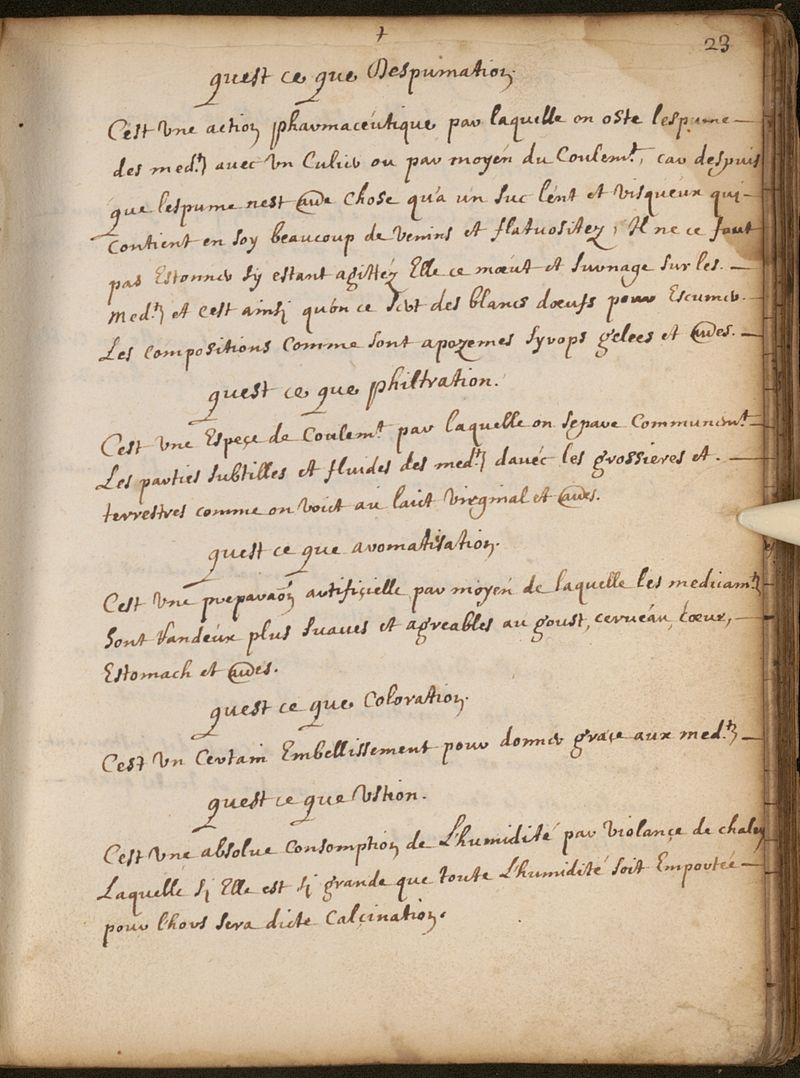 +
23
quest ce que Despumation.
C'est Une action pharmaceutique par laquelle on oste lespume
des med.ts avec Un Culier ou par moyen du Coulem.t, car despuis
que lespume nest autre Chose qu'a un suc lent et visqueux qui
Contient en soy beaucoup de venins et flatuositez, Il ne ce faut
pas Estonner sy estant agittéz Elle ce mœut et surnage sur les
med.ts et cest ainsj quón ce sert des blancs dœufs pour Escumer
Les compositions Comme sont apozemes syrops gelees et autres.
quest ce que philtration.
C'est Une Espeçe de Coulem.t par laquelle on separe Communem.t
Les parties subtilles et fluides des med.ts davéc les grossieres et
terrestres comme on voict au laict virginal et autres.
quest ce que aromatisation.
C'est Une preparaõn artifiçielle par moyen de laquelle les medicam.ts
sont randeux plus suaves et agreables au goust, cerveau, cœur,
Estomach et autres.
quest ce que Coloration.
C'est Un Certain Embellissement pour donner graçe aux med.ts
quest ce que Ustion.
C'est Une absolue Consomption de L'humidité par violançe de chaleur
Laquelle sj Elle est sj grande que toute L'humidité soit Emportée
pour lhors sera dicte Calçination.